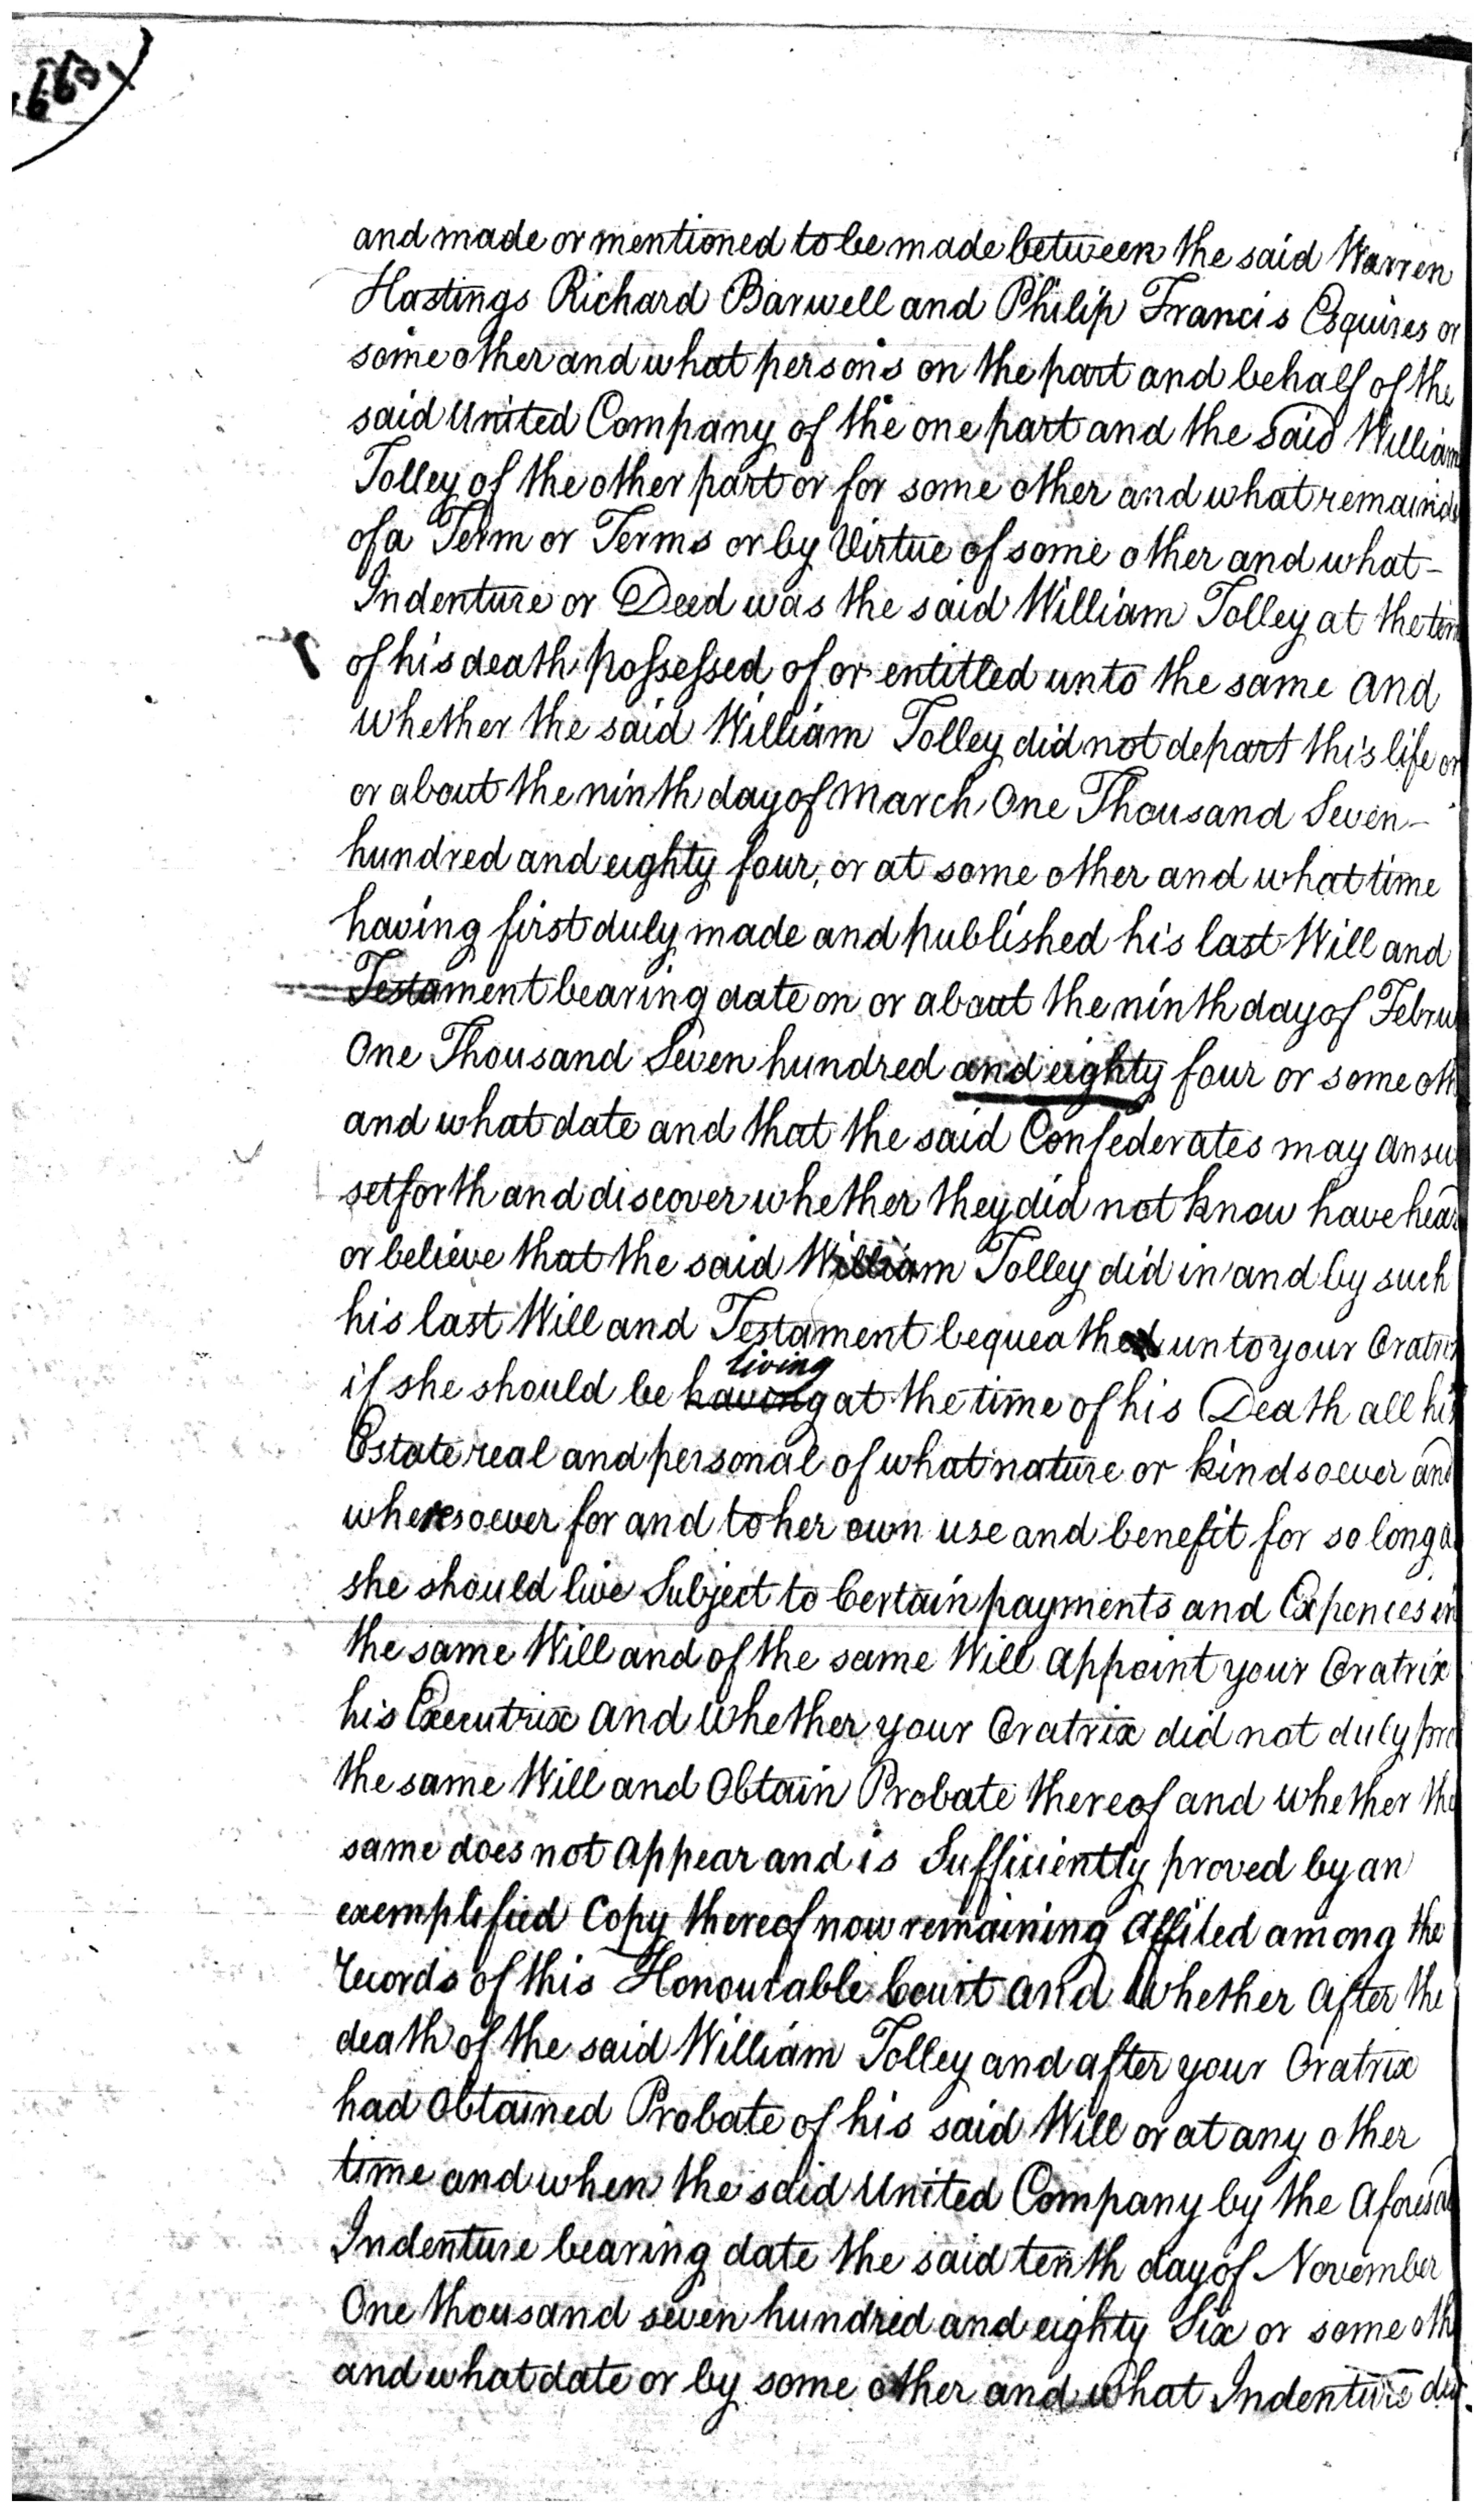 and made or mentioned to be made between the said Warren
Hastings Richard Barwell and Philip Francis Esquires or
some other and what persons on the part and behalf of the
said United Company of the one part and the said William
Tolley of the other part or for some other and what remainde
of a Term or Terms or by Virtue of some other and what-
Indenture or Deed was the said William Tolley at the tim
of his death possessed of or entitled unto the same and
whether the said William Tolley did not depart this life on
or about the ninth day of March One Thousand Seven-
hundred and eighty four, or at some other and what time
having first duly made and published his last Will and
Testament bearing date on or about the ninth day of Febru
One Thousand Seven hundred and eighty four or some oth
and what date and that the said Confederates may answ
set forth and discover whether they did not know have heard
or believe that the said William Tolley did in and by such
his last Will and Testament bequeathed unto your Oratrix
living
if she should be having at the time of his Death all his
Estate real and personal of what nature or kind soever and
wheresoever for and to her own use and benefit for so long a
she should live Subject to Certain payments and Expences in
the same Will and of the same Will appoint your Oratrix
his Executrix and whether your Oratrix did not duly pro
the same Will and Obtain Probate thereof and whether the
same does not appear and is Sufficiently proved by an
exemplified Copy thereof now remaining affiled among the
records of this Honourable Court and whether after the
death of the said William Tolley and after your Oratrix
had obtained Probate of his said Will or at any other
time and when the said United Company by the aforesa
Indenture bearing date the said tenth day of November
One thousand seven hundred and eighty Six or some oth
and what date or by some other and what Indenture did